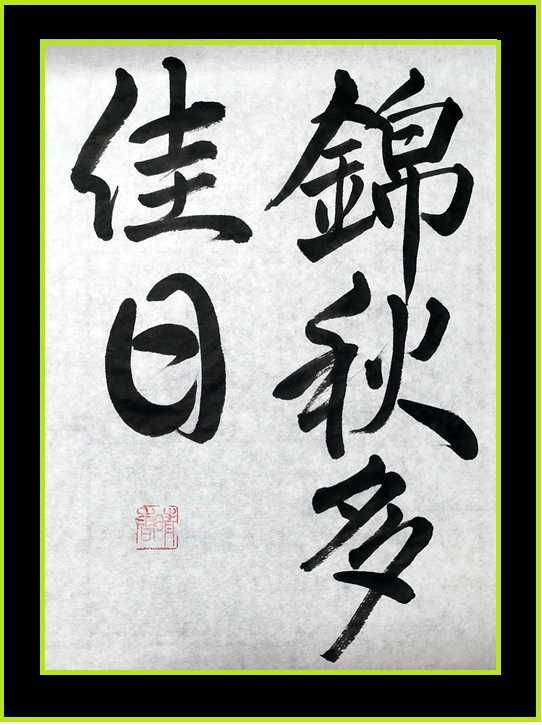 錦秋多
佳日